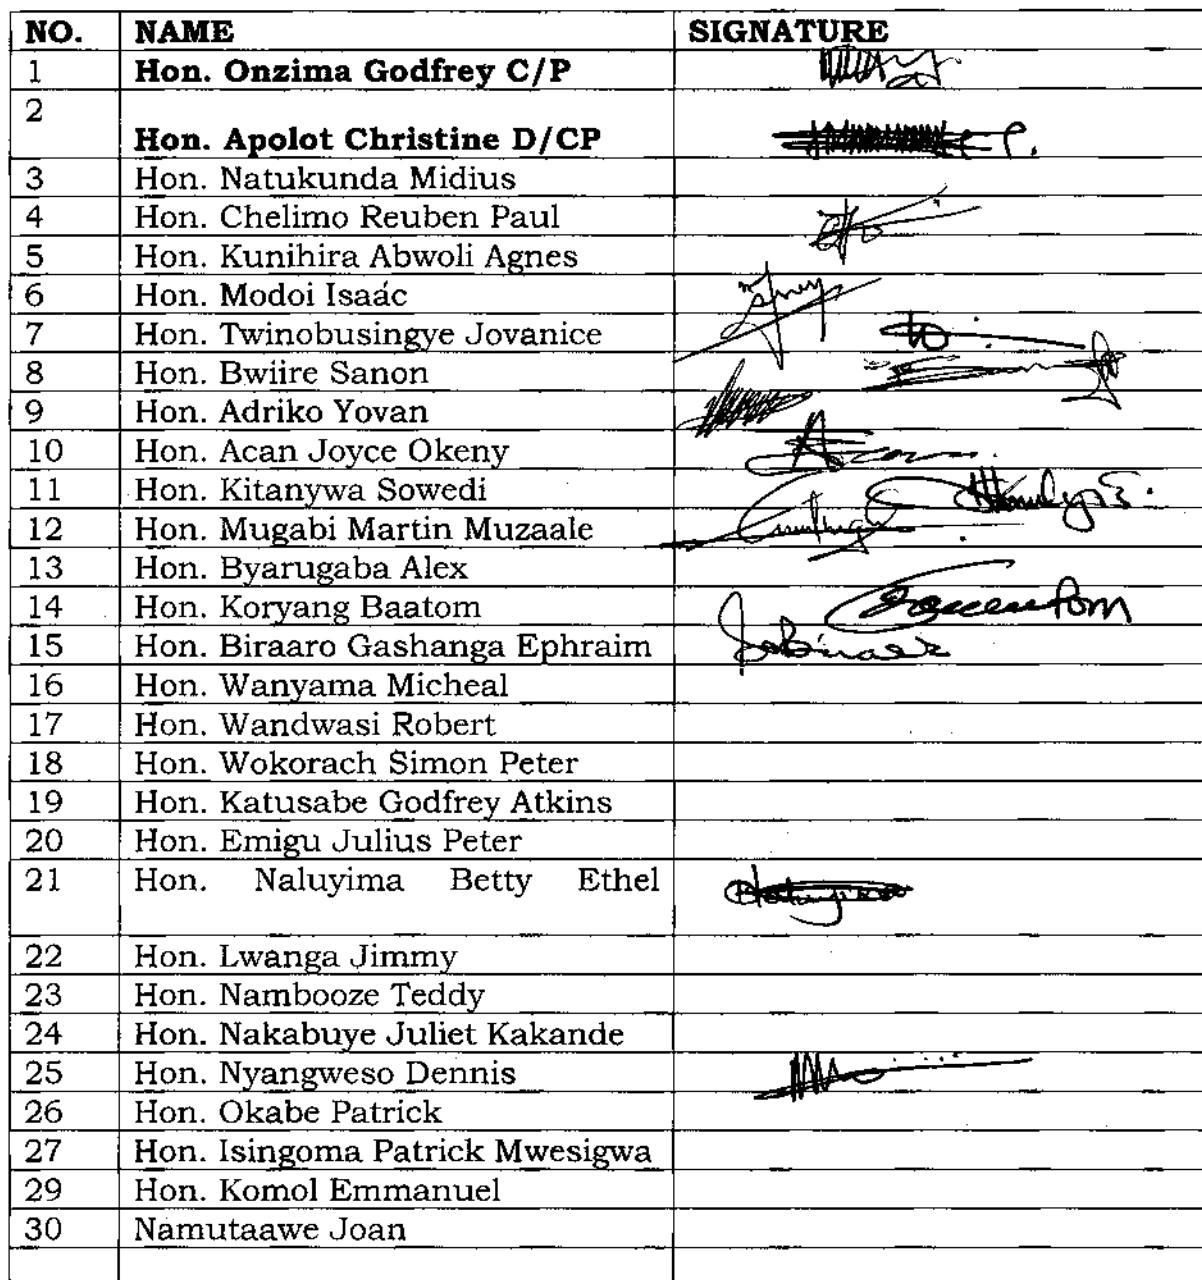 NO. NAME SIGNATURE
1 Hon. Onzima Godfrey C/P
2 Hon. Apolot Christine D/CP
3 Hon. Natukunda Midius
4 Hon. Chelimo Reuben Paul
5 Hon. Kunihira Abwoli Agnes
6 Hon. Modoi Isaác
7 Hon. Twinobusingye Jovanice
8 Hon. Bwiire Sanon
9 Hon. Adriko Yovan
10 Hon. Acan Joyce Okeny
11 Hon. Kitanywa Sowedi
12 Hon. Mugabi Martin Muzaale
13 Hon. Byarugaba Alex
14 Hon. Koryang Baatom
15 Hon. Biraaro Gashanga Ephraim
16 Hon. Wanyama Micheal
17 Hon. Wandwasi Robert
18 Hon. Wokorach Simon Peter
19 Hon. Katusabe Godfrey Atkins
20 Hon. Emigu Julius Peter
21 Hon. Naluyima Betty Ethel
22 Hon. Lwanga Jimmy
23 Hon. Nambooze Teddy
24 Hon. Nakabuye Juliet Kakande
25 Hon. Nyangweso Dennis
26 Hon. Okabe Patrick
27 Hon. Isingoma Patrick Mwesigwa
29 Hon. Komol Emmanuel
30 Namutaawe Joan